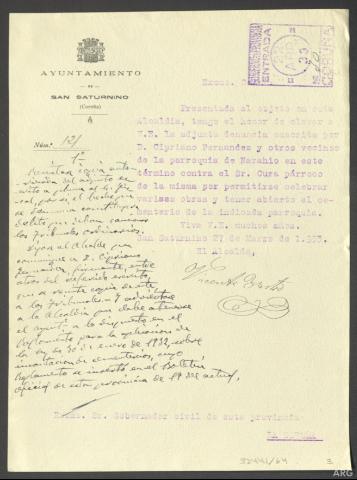 AYUNTAMIENTO
DE
SAN SATURNINO
(Coruña)
Núm. 121
ENTRADA
ABR
33
CORUÑA
Excmo. Sr.
Presentada al objeto en esta
Alcaldía, tengo el honor de elevar a
V.E. la adjunta denuncia suscrita por
D. Cipriano Fernandez y otros vecinos
de la parroquia de Narahio en este
término contra el Sr. Cura párroco
de la misma por permitirse celebrar
varias obras y tener abierto el ce-
menterio de la indicada parroquia.
Viva V.E. muchos años.
San Saturnino 27 de Marzo de 1.933.
El Alcalde,
Remítase copia
Fiscal, por si el hecho que
se denuncia constituye
delito que deban conocer
los Tribunales ordinarios.
Dígase al Alcalde que
comunique a D. Cipriano
Fernandez, firmante, entre
otros del referido escrito,
que se remite copia de este
a los Tribunales. Y adviértase
a la Alcaldía que debe atenerse
el ayunt. a lo dispuesto en el
Reglamento para la aplicación de
la ley de 30 de enero de 1932, sobre
cementerios, cuyo
Reglamento se insertó en el Boletín
oficial de esta provincia de actual.
Excmo. Sr. Gobernador civil de esta provincia
LA CORUÑA
32441/64
3
ARG